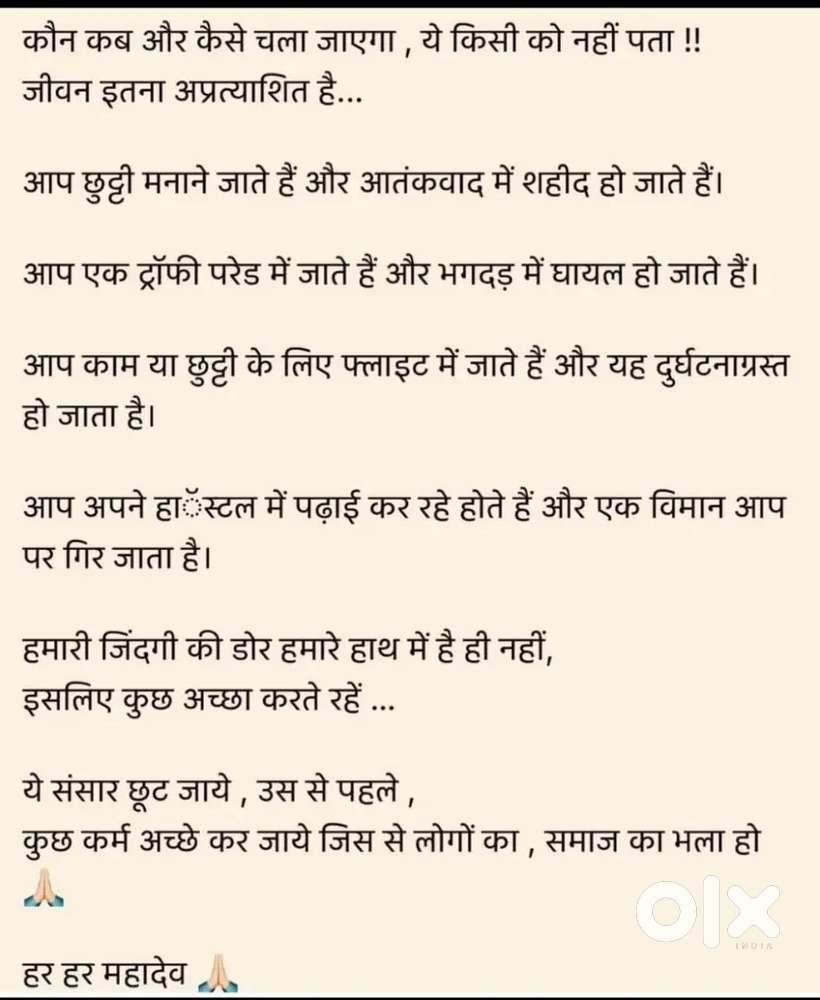 कौन कब और कैसे चला जाएगा , ये किसी को नहीं पता !!
जीवन इतना अप्रत्याशित है...
आप छुट्टी मनाने जाते हैं और आतंकवाद में शहीद हो जाते हैं।
आप एक ट्रॉफी परेड में जाते हैं और भगदड़ में घायल हो जाते हैं।
आप काम या छुट्टी के लिए फ्लाइट में जाते हैं और यह दुर्घटनाग्रस्त
हो जाता है।
आप अपने हाॅस्टल में पढ़ाई कर रहे होते हैं और एक विमान आप
पर गिर जाता है।
हमारी जिंदगी की डोर हमारे हाथ में है ही नहीं,
इसलिए कुछ अच्छा करते रहें ...
ये संसार छूट जाये , उस से पहले ,
कुछ कर्म अच्छे कर जाये जिस से लोगों का , समाज का भला हो
🙏🏻
हर हर महादेव 🙏🏻
olx
INDIA